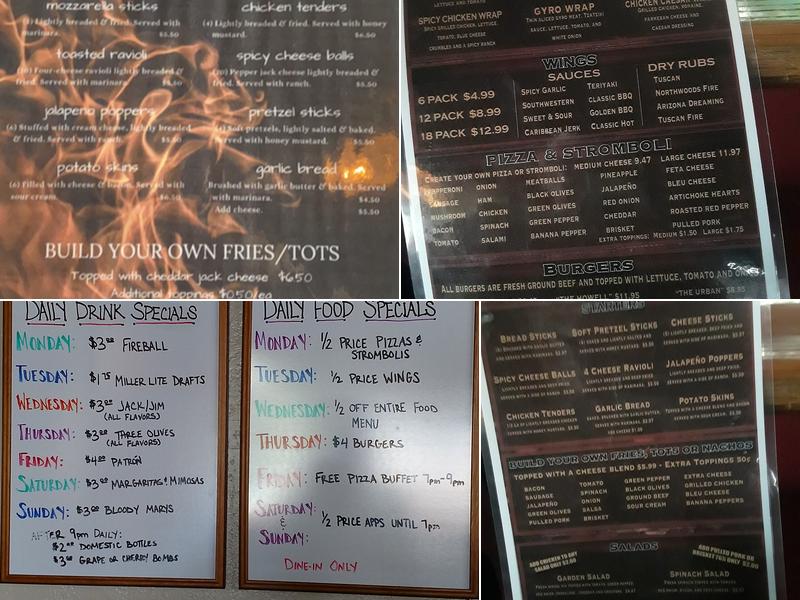 mozzarella sticks
(5) Lightly breaded & fried. Served with
marinara. $5.50
toasted ravioli
(10) Four-cheese ravioli lightly breaded &
fried. Served with marinara. $5.50
jalapeno poppers
(6) Stuffed with cream cheese, lightly breaded
& fried. Served with ranch. $5.50
potato skins
(6) Filled with cheese & bacon. Served with
sour cream.
chicken tenders
(4) Lightly breaded & fried. Served with honey
mustard. $6.50
spicy cheese balls
(20) Pepper jack cheese lightly breaded &
fried. Served with ranch. $5.50
pretzel sticks
(4) Soft pretzels, lightly salted & baked.
Served with honey mustard. $5.50
garlic bread
Brushed with garlic butter & baked. Served
with marinara. $4.50
Add cheese. $5.50
BUILD YOUR OWN FRIES/TOTS
Topped with cheddar jack cheese $6.50
Additional toppings $0.50/ea
SPICY CHICKEN WRAP
GRILLED CHICKEN, LETTUCE,
TOMATO, BLUE CHEESE
CRUMBLES AND A SPICY RANCH
GYRO WRAP
THIN SLICED GYRO MEAT, TZATSIKI
SAUCE, LETTUCE, TOMATO, AND
WHITE ONION
CHICKEN CAESAR
GRILLED CHICKEN, ROMAINE,
PARMESAN CHEESE AND
CAESAR DRESSING
WINGS
6 PACK $4.99
12 PACK $8.99
18 PACK $12.99
SAUCES
SPICY GARLIC TERIYAKI
SOUTHWESTERN CLASSIC BBQ
SWEET & SOUR GOLDEN BBQ
CARIBBEAN JERK CLASSIC HOT
DRY RUBS
TUSCAN
NORTHWOODS FIRE
ARIZONA DREAMING
TUSCAN FIRE
PIZZA & STROMBOLI
CREATE YOUR OWN PIZZA OR STROMBOLI: MEDIUM CHEESE 9.47 LARGE CHEESE 11.97
PEPPERONI ONION MEATBALLS PINEAPPLE FETA CHEESE
SAUSAGE HAM BLACK OLIVES JALAPEÑO BLEU CHEESE
MUSHROOM CHICKEN GREEN OLIVES RED ONION ARTICHOKE HEARTS
BACON SPINACH GREEN PEPPER CHEDDAR ROASTED RED PEPPER
TOMATO SALAMI BANANA PEPPER BRISKET PULLED PORK
EXTRA TOPPINGS: MEDIUM $1.50 LARGE $1.75
BURGERS
ALL BURGERS ARE FRESH GROUND BEEF AND TOPPED WITH LETTUCE, TOMATO AND
"THE HOWELL" $11.95 "THE URBAN" $8.95
DAILY DRINK SPECIALS
MONDAY: $3.00 FIREBALL
TUESDAY: $1.75 MILLER LITE DRAFTS
WEDNESDAY: $3.00 JACK/JIM
(ALL FLAVORS)
THURSDAY: $3.00 THREE OLIVES
(ALL FLAVORS)
FRIDAY: $4.00 PATRÓN
SATURDAY: $3.00 MARGARITAS & MIMOSAS
SUNDAY: $3.00 BLOODY MARYS
AFTER 9pm DAILY:
$2.00 DOMESTIC BOTTLES
$3.00 GRAPE OR CHERRY BOMBS
DAILY FOOD SPECIALS
MONDAY: 1/2 PRICE PIZZAS &
STROMBOLIS
TUESDAY: 1/2 PRICE WINGS
WEDNESDAY: 1/2 OFF ENTIRE FOOD
MENU
THURSDAY: $4 BURGERS
FRIDAY: FREE PIZZA BUFFET 7pm-9pm
SATURDAY
&
SUNDAY: 1/2 PRICE APPS UNTIL 7pm
DINE-IN ONLY
STARTERS
BREAD STICKS
SOFT PRETZEL STICKS
CHEESE STICKS
SPICY CHEESE BALLS
4 CHEESE RAVIOLI
JALAPEÑO POPPERS
CHICKEN TENDERS
GARLIC BREAD
POTATO SKINS
BUILD YOUR OWN FRIES, TOTS OR NACHOS
TOPPED WITH A CHEESE BLEND $5.99 - EXTRA TOPPINGS 50¢
BACON TOMATO GREEN PEPPER EXTRA CHEESE
SAUSAGE SPINACH BLACK OLIVES GRILLED CHICKEN
JALAPEÑO ONION GROUND BEEF BLEU CHEESE
GREEN OLIVES SALSA SOUR CREAM BANANA PEPPERS
PULLED PORK BRISKET
SALADS
ADD CHICKEN TO ANY
SALAD ONLY $2.00
ADD PULLED PORK OR
BRISKET ONLY $2.00
GARDEN SALAD
SPINACH SALAD